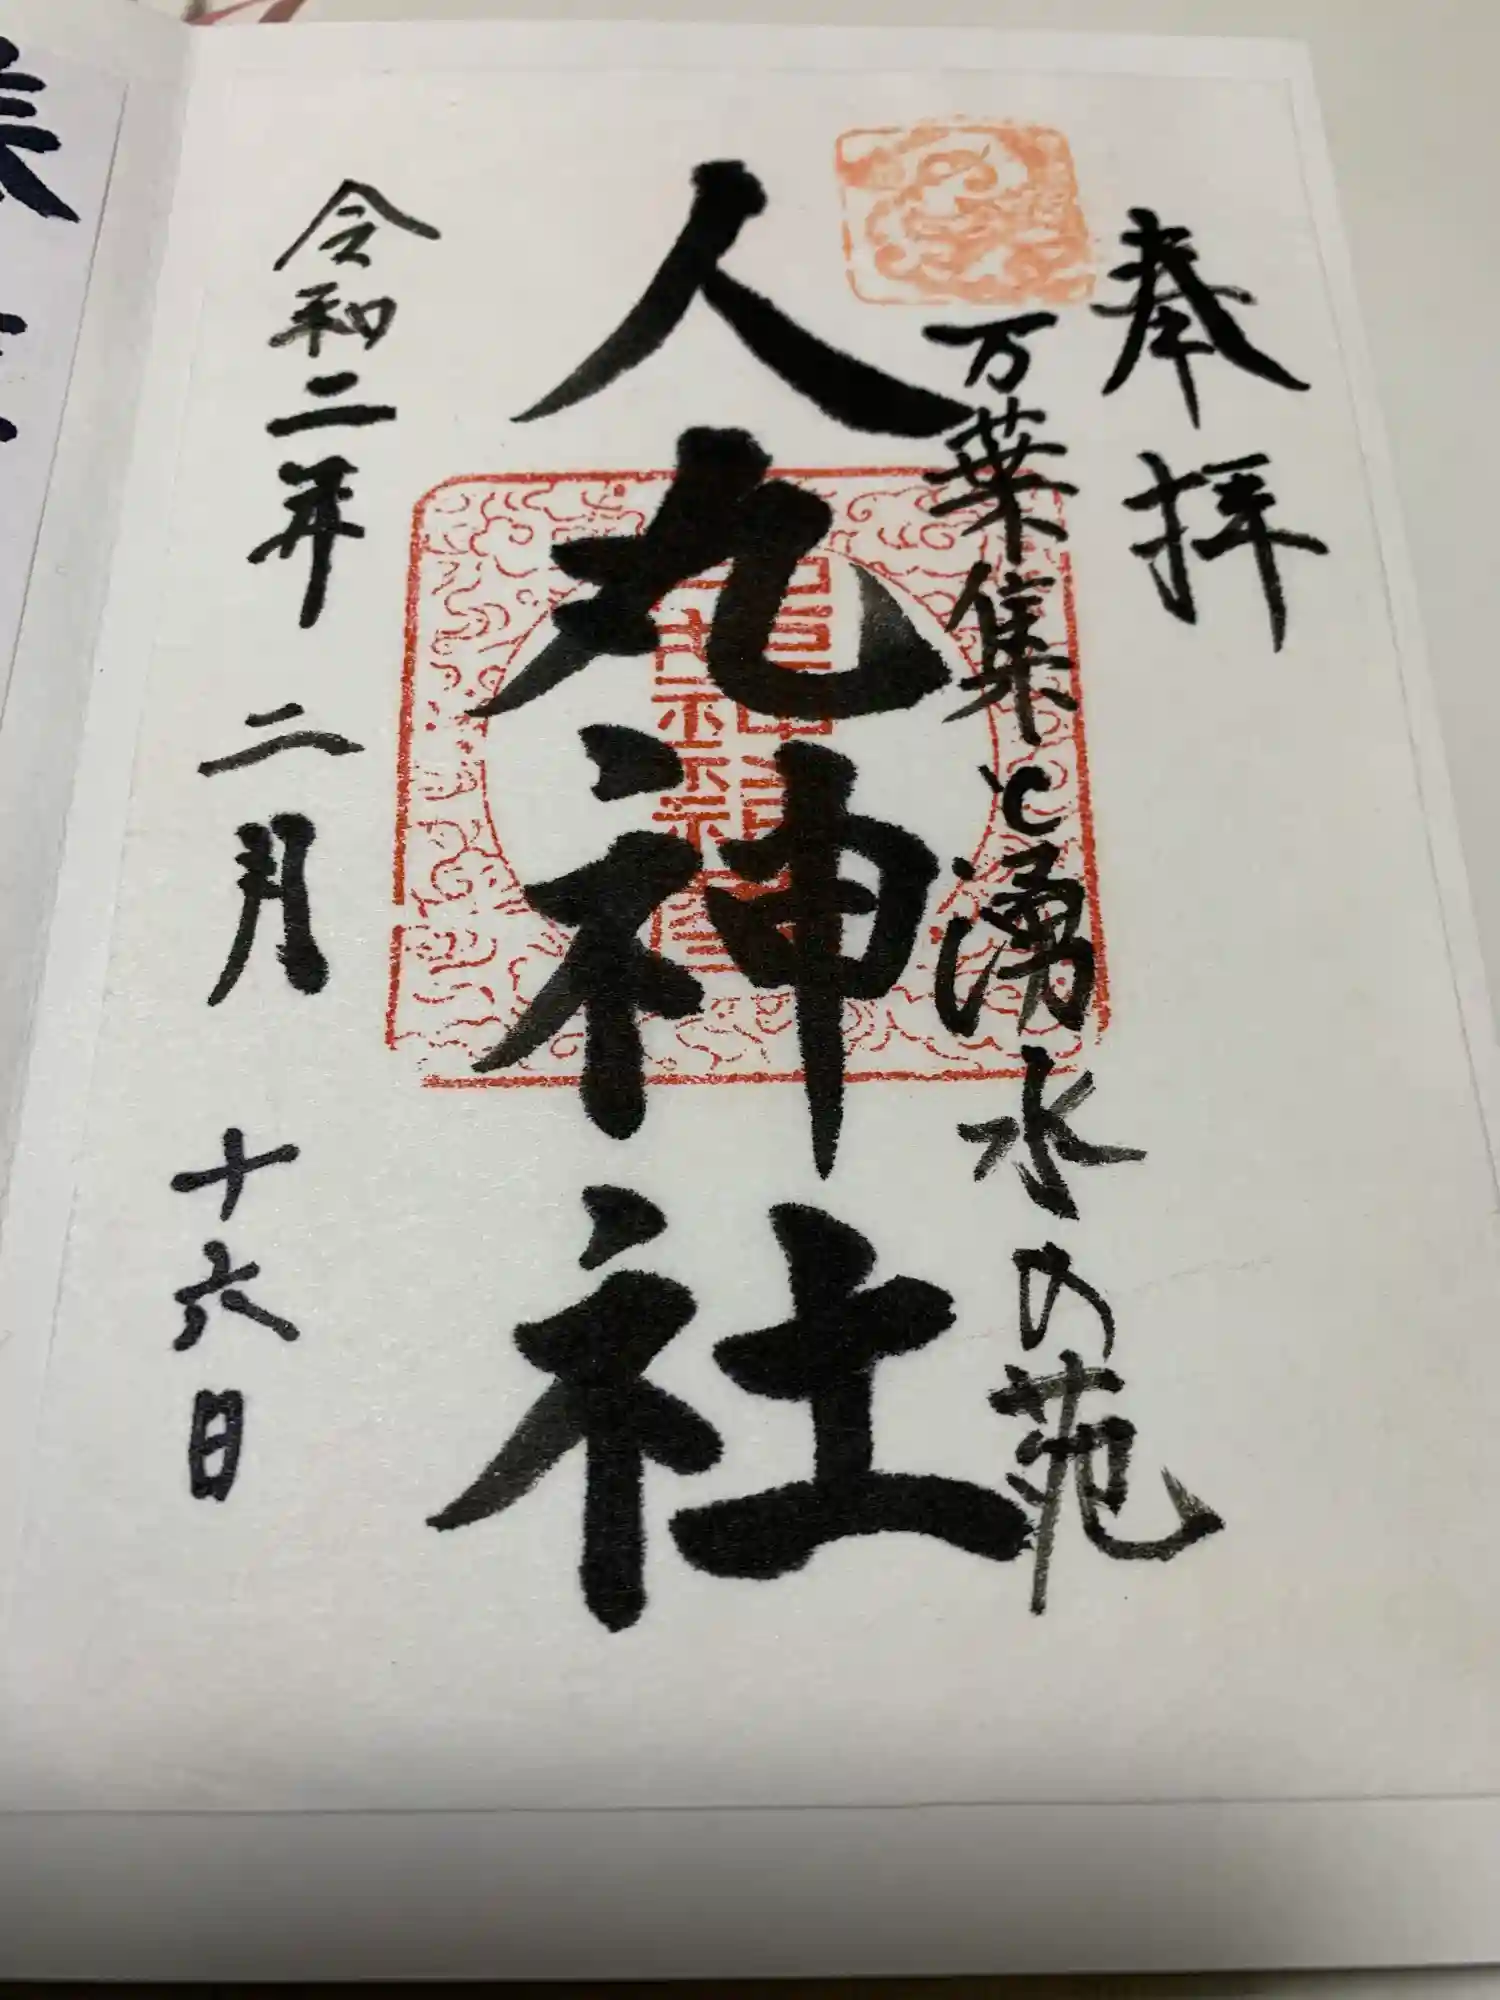 奉拝
万葉集と湧水の苑
人丸神社
令和二年 二月 十六日